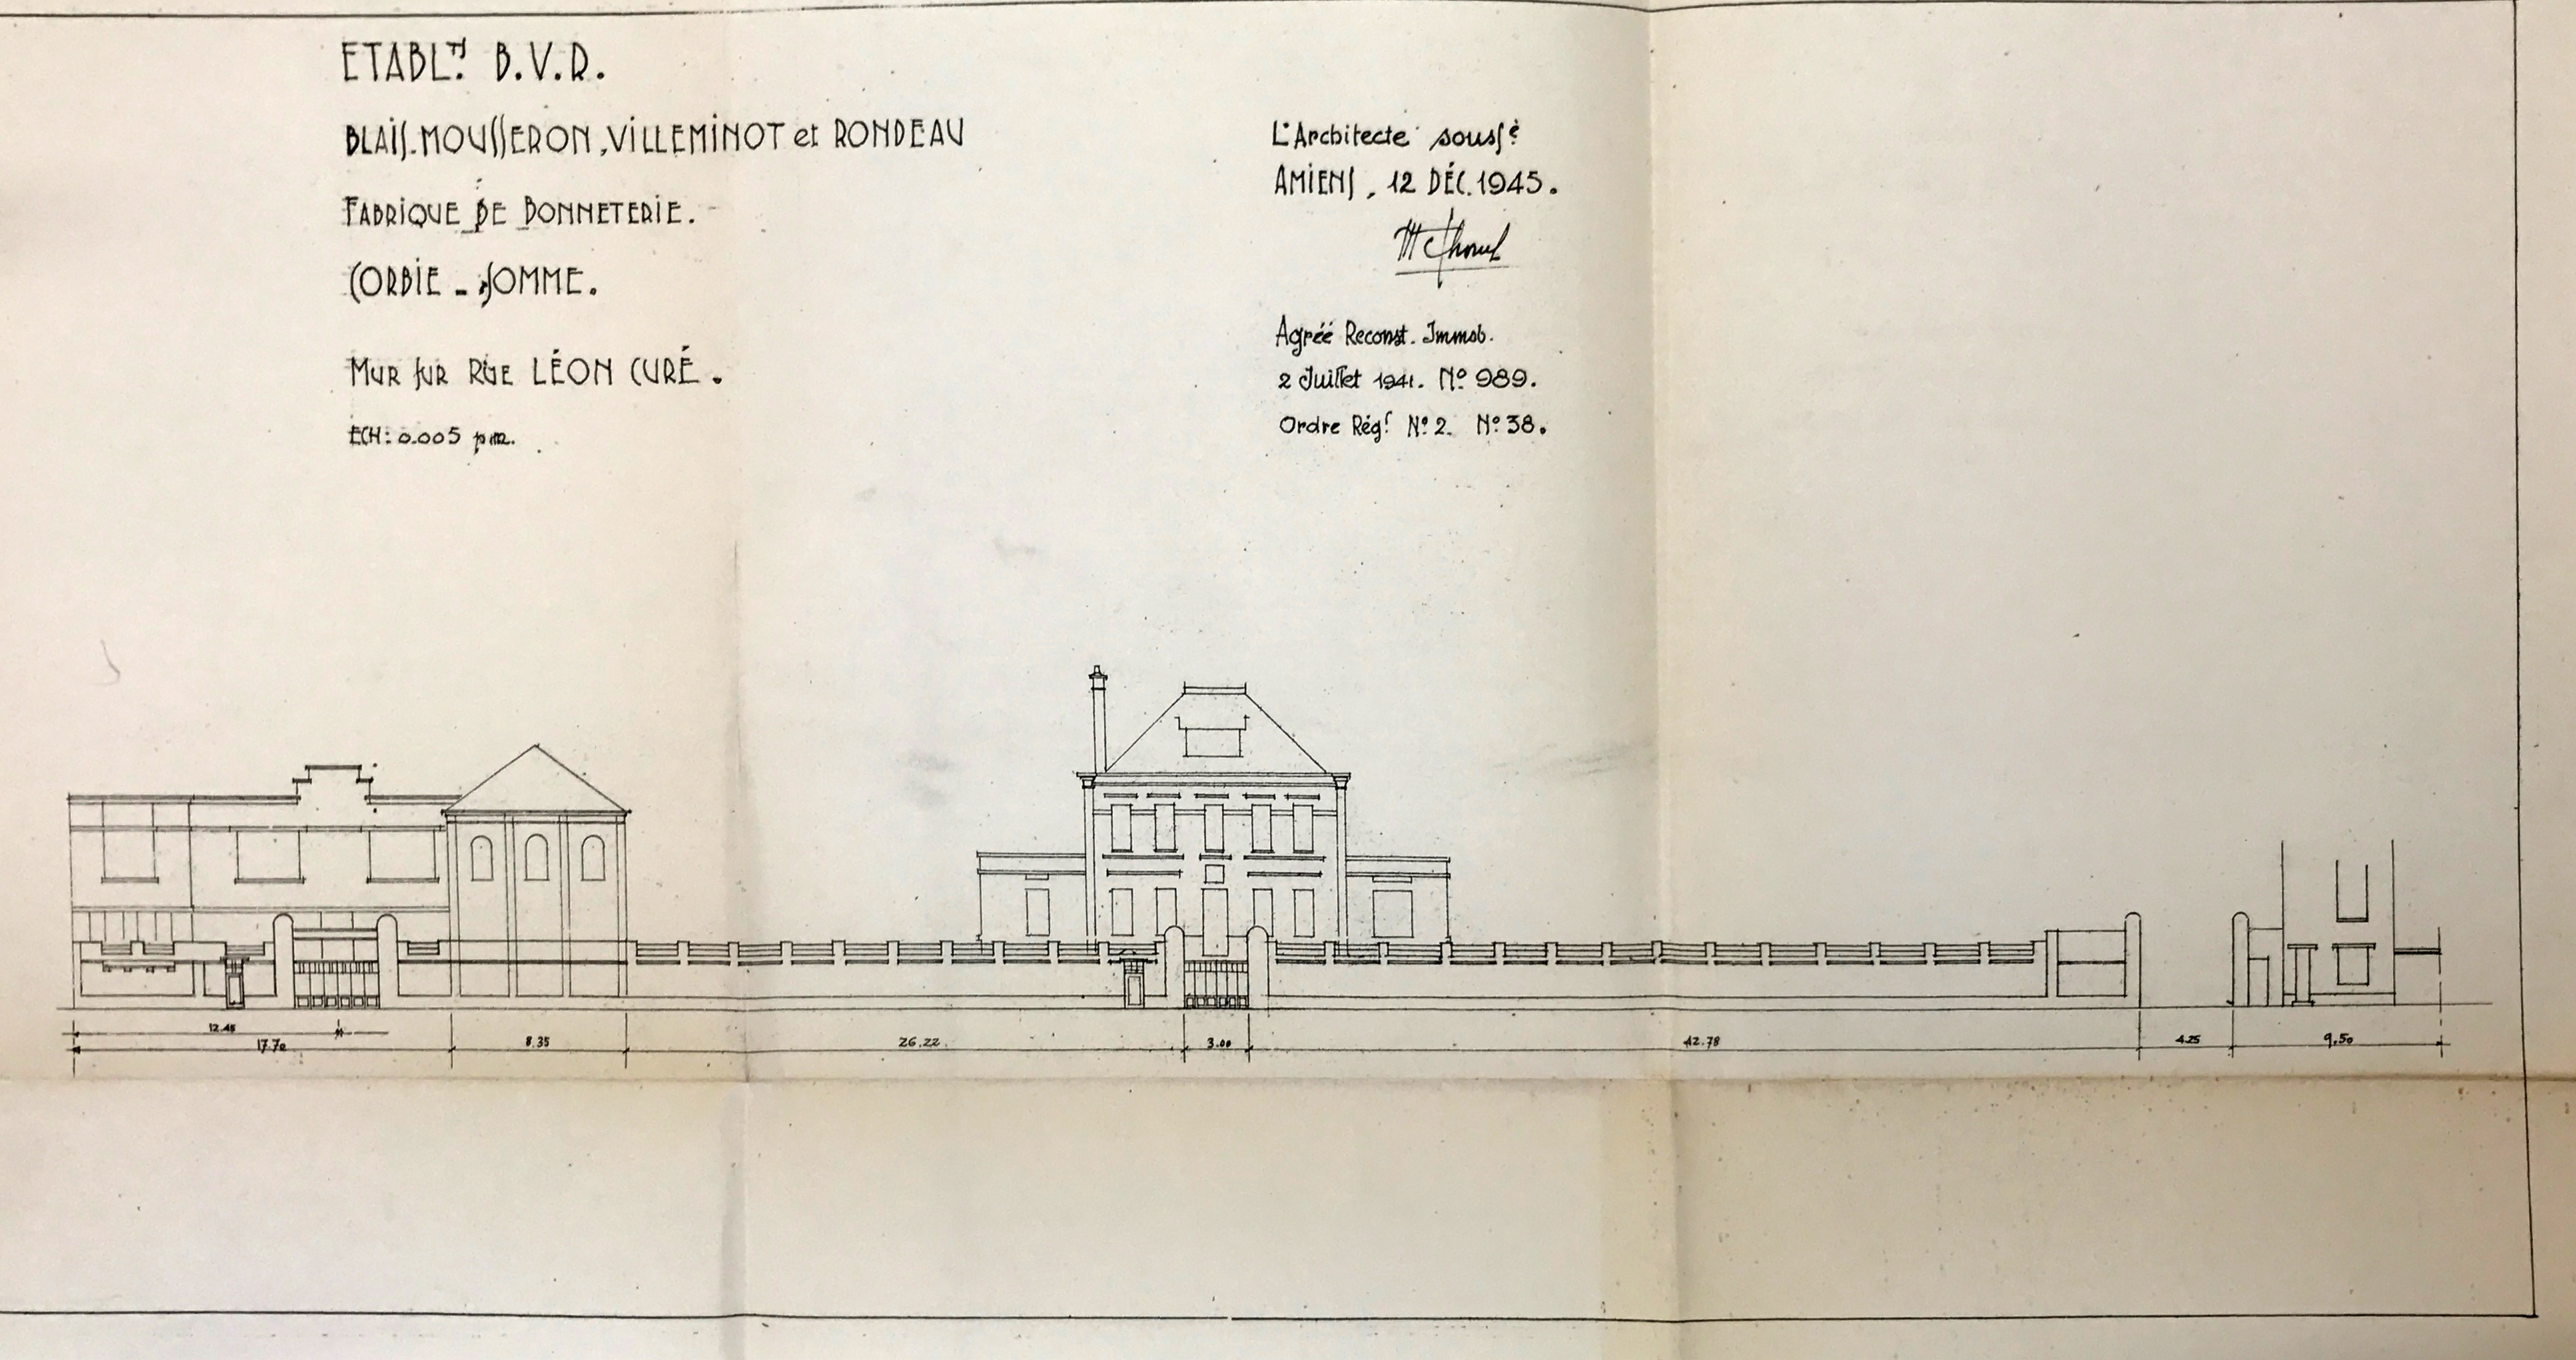 ETABLTS. B.V.R.
BLAIS-MOUSSERON, VILLEMINOT et RONDEAU
FABRIQUE DE BONNETERIE.
CORBIE - SOMME.
MUR SUR RUE LÉON CURÉ.
ECH: 0.005 p.m.
L'Architecte soussé
AMIENS, 12 DÉC. 1945.
Agréé Reconst. Immob.
2 Juillet 1941. No 989.
Ordre Régl No 2. No 38.
12.45
17.70
8.35
26.22
3.00
42.78
4.25
9,50